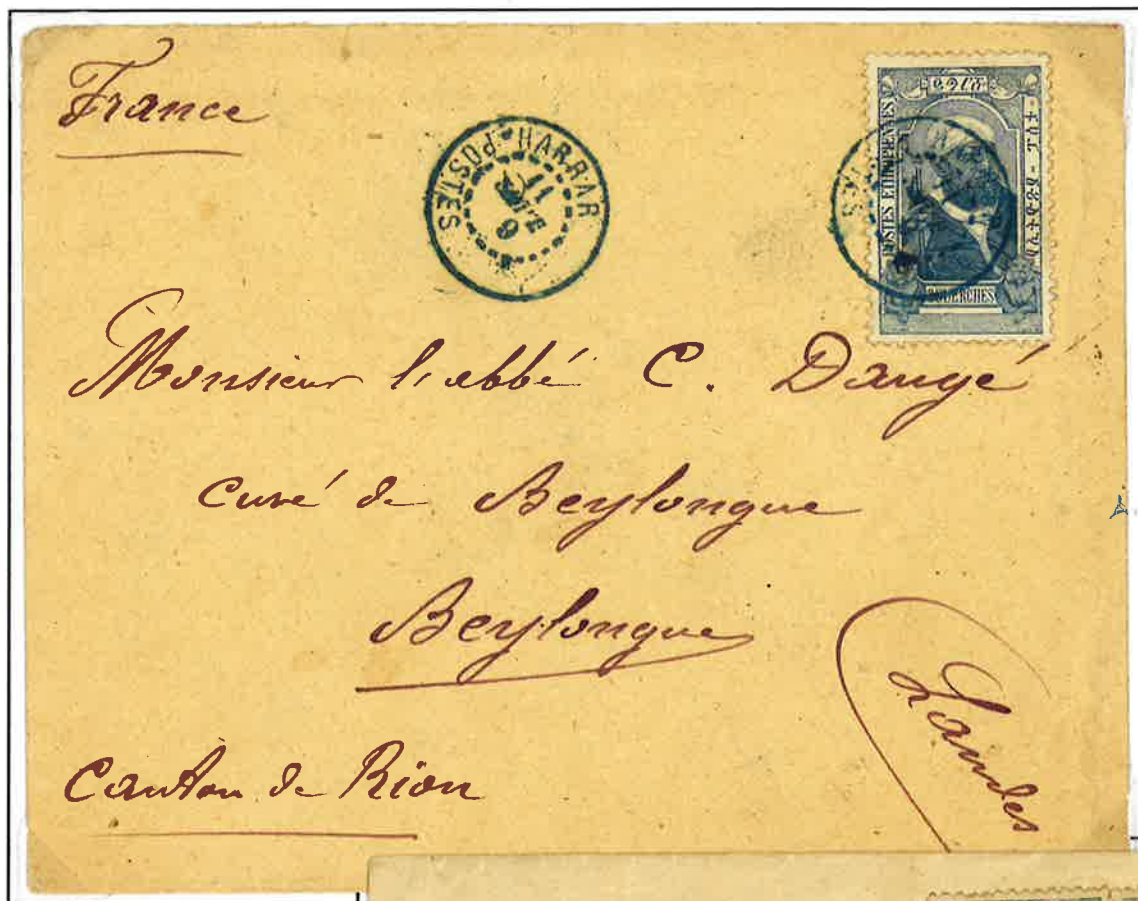 France
HARRAR POSTES
11
9
POSTES ETHIOPIENNES
Monsieur l'abbé C. Daugé
curé de Beylongue
Beylongue
Landes
Canton de Rion